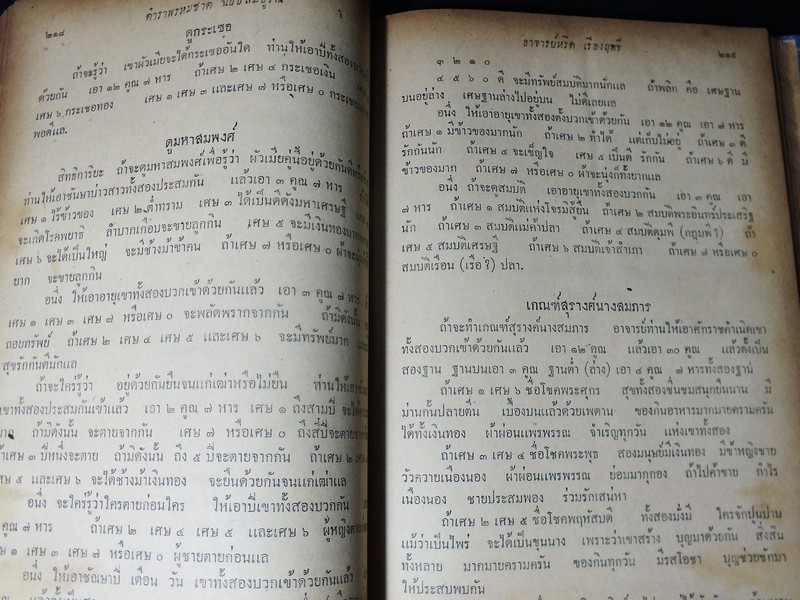 ตำราพรหมชาติ ฉบับสมบูรณ์
๒๑๘
ดูกระเชอ
ถ้าจะรู้ว่า เขาผัวเมียจะได้กระเชออันใด ท่านให้เอาปีทั้งสองบวก
ด้วยกัน เอา ๑๒ คูณ ๗ หาร ถ้าเศษ ๒ เศษ ๔ กระเชอเงิน
เศษ ๖ กระเชอทอง เศษ ๑ เศษ ๓ และเศษ ๗ หรือเศษ ๐ กระเชอ
พอดีแล.
ดูมหาสมพงศ์
สิทธิการิยะ ถ้าจะดูมหาสมพงศ์เพื่อรู้ว่า ผัวเมียคู่นี้อยู่ด้วยกันดีหรือ
ท่านให้เอาชันษาบ่าวสาวทั้งสองประสมกัน แล้วเอา ๓ คูณ ๗ หาร
เศษ ๑ ไร้ข้าวของ เศษ ๒ ต่ำทราม เศษ ๓ ได้เป็นดีดังมหาเศรษฐี
จะเกิดโรคพยาธิ ลำบากเกือบจะขายลูกกิน เศษ ๕ จะมีเงินทอง
เศษ ๖ จะได้เป็นใหญ่ จะมีช้างม้าข้าคน ถ้าเศษ ๗ หรือเศษ ๐ ผ้าจะนุ่ง
ยาก จะขายลูกกิน
อนึ่ง ให้เอาอายุเขาทั้งสองบวกเข้าด้วยกันแล้ว เอา ๓ คูณ ๗ หาร
เศษ ๑ เศษ ๓ เศษ ๗ หรือเศษ ๐ จะพลัดพรากจากกัน ถ้ามิดังนั้น
ถอยทรัพย์ ถ้าเศษ ๒ เศษ ๔ เศษ ๕ และเศษ ๖ จะมีทรัพย์มาก
สุขรักกันดีนักแล
ถ้าจะใคร่รู้ว่า อยู่ด้วยกันยืนจนแก่เฒ่าหรือไม่ยืน ท่านให้เอา
เขาทั้งสองประสมกันเข้าแล้ว เอา ๒ คูณ ๗ หาร เศษ ๑ ถึงสามปี จะได้
ถ้ามิดังนั้น จะตายจากกัน เศษ ๗ หรือเศษ ๐ ถึงสี่ปีจะตายจาก
ถ้าเศษ ๓ ปีหนึ่งจะตาย ถ้ามิดังนั้น ถึง ๕ ปีจะตายจากกัน ถ้าเศษ ๒ เศษ
เศษ ๕ และเศษ ๖ จะได้ช้างม้าเงินทอง จะยืนด้วยกันจนแก่เฒ่าแล
อนึ่ง จะใคร่รู้ว่าใครตายก่อนใคร ให้เอาปีเขาทั้งสองบวกกัน
คูณ ๗ หาร ถ้าเศษ ๒ เศษ ๔ เศษ ๕ และเศษ ๖ ผู้หญิงตาย
เศษ ๑ เศษ ๓ เศษ ๗ หรือเศษ ๐ ผู้ชายตายก่อนแล
อนึ่ง ให้เอาชัณษาปี เดือน วัน เขาทั้งสองบวกเข้าด้วยกันแล้ว
อาจารย์หรีด เรืองฤทธิ์
๒๑๙
๓ ๒ ๑ ๐
๔ ๕ ๖ ๐ ดี จะมีทรัพย์สมบัติมากนักแล ถ้าพลิก คือ เศษฐาน
บนอยู่ล่าง เศษฐานล่างไปอยู่บน ไม่ดีเลยแล
อนึ่ง ให้เอาอายุเขาทั้งสองตั้งบวกเข้าด้วยกัน เอา ๑๒ คูณ เอา ๗ หาร
ถ้าเศษ ๑ มีข้าวของมากนัก ถ้าเศษ ๒ ทำได้ แต่เก็บไม่อยู่ ถ้าเศษ ๓ ดี
รักกันนัก ถ้าเศษ ๔ จะเข็ญใจ เศษ ๕ เป็นดี รักกัน ถ้าเศษ ๖ ดี มี
ข้าวของมาก ถ้าเศษ ๗ หรือเศษ ๐ ผ้าจะนุ่งก็ทั้งยากแล
อนึ่ง ถ้าจะดูสมบัติ เอาอายุเขาทั้งสองบวกกัน เอา ๓ คูณ เอา
๗ หาร ถ้าเศษ ๑ สมบัติแห่งโจรมิสู้ยืน ถ้าเศษ ๒ สมบัติพระอินทร์ประเสริฐ
นัก ถ้าเศษ ๓ สมบัติแม่ค้าปลา ถ้าเศษ ๔ สมบัติตุมพี (กฎุมพี ?) ถ้า
เศษ ๕ สมบัติเศรษฐี ถ้าเศษ ๖ สมบัติเจ้าสำเภา ถ้าเศษ ๗ หรือเศษ ๐
สมบัติเรือน (เรือ ?) ปลา.
เกณฑ์สุรางค์นางสมภาร
ถ้าจะทำเกณฑ์สุรางค์นางสมภาร อาจารย์ท่านให้เอาศักราชกำเนิดเขา
ทั้งสองบวกเข้าด้วยกันแล้ว เอา ๑๒ คูณ แล้วเอา ๓๐ คูณ แล้วตั้งเป็น
สองฐาน ฐานบนเอา ๓ คูณ ฐานต่ำ (ล่าง) เอา ๔ คูณ ๗ หารทั้งสองฐาน
ถ้าเศษ ๑ เศษ ๖ ชื่อโชคพระศุกร สุขทั้งสองชื่นชมสนุกยืนนาน มี
ม่านกั้นปลายตีน เบื้องบนแล้วด้วยเพดาน ของกินอาหารมากมายครามครัน
ได้ทั้งเงินทอง ผ้าผ่อนแพรพรรณ จำเริญทุกวัน แห่งเขาทั้งสอง
ถ้าเศษ ๓ เศษ ๔ ชื่อโชคพระพุธ สองมนุษย์มีเงินทอง มีข้าหญิงชาย
วัวควายเนืองนอง ผ้าผ่อนแพรพรรณ ย่อมมากูกอง ถ้าไปค้าขาย กำไร
เนืองนอง ชายประสมพอง ร่วมรักเสน่หา
ถ้าเศษ ๒ เศษ ๕ ชื่อโชคพฤหัสบดี ทั้งสองมั่งมี ใครจักปูนปาน
แม้ว่าเป็นไพร่ จะได้เป็นขุนนาง เพราะว่าเขาสร้าง บุญมาด้วยกัน สิ่งสิน
ทั้งหลาย มากมายครามครัน ของกินทุกวัน มีรสโอชา บุญช่วยชักมา
ให้ประสบพบกัน